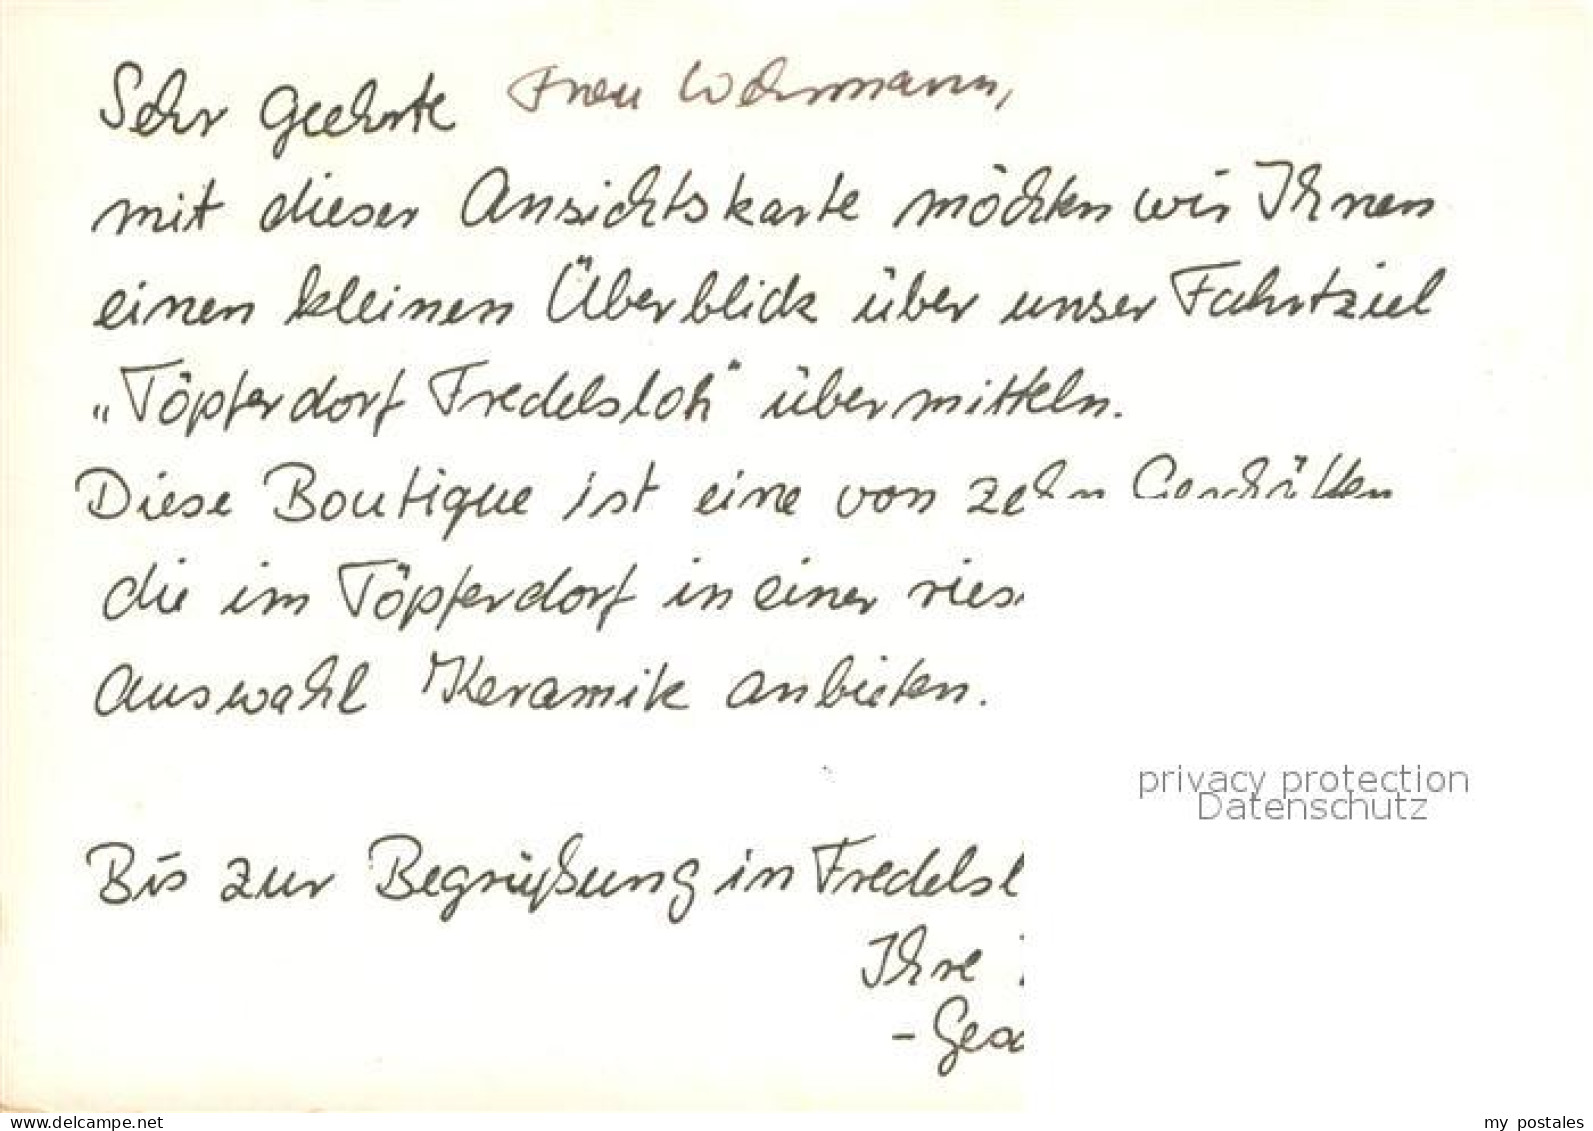 Sehr geehrte Frau Wehrmann,
mit dieser Ansichtskarte möchten wir Ihnen
einen kleinen Überblick über unser Fahrtziel
„Töpferdorf Fredelsloh" übermitteln.
Diese Boutique ist eine von zehn Geschäften
die im Töpferdorf in einer ries
Auswahl Keramik anbieten.
privacy protection
Datenschutz
Bis zur Begrüßung in Fredelsl
Ihre
- Gesc
delcampe.net
my_postales